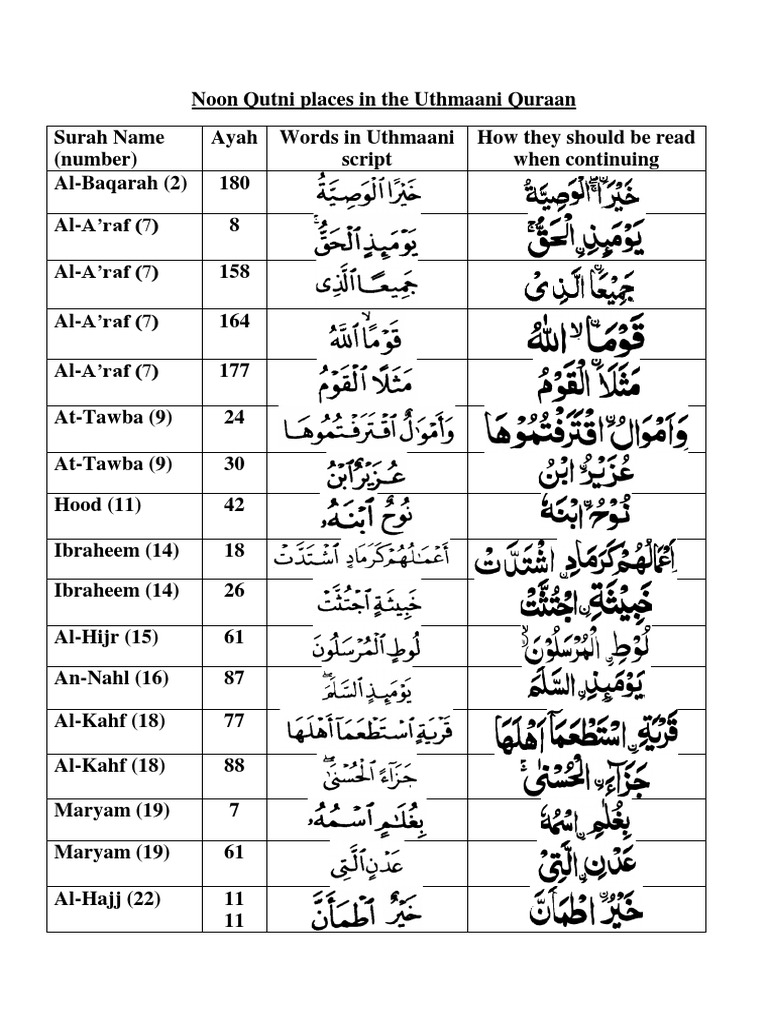 Noon Qutni places in the Uthmaani Quraan
Surah Name (number) Ayah Words in Uthmaani script How they should be read when continuing
Al-Baqarah (2) 180 خَيْرًا ٱلْوَصِيَّةُ خَيْرَاۨ الْوَصِيَّةُ
Al-A’raf (7) 8 يَوْمَئِذٍ ٱلْحَقُّ ۚ يَوْمَئِذِ ۨالْحَقُّ ۚ
Al-A’raf (7) 158 جَمِيعًا ٱلَّذِى جَمِيْعَاۨ الَّذِىْ
Al-A’raf (7) 164 قَوْمًا ۙ ٱللَّهُ قَوْمَاۨ ۙ اللّٰهُ
Al-A’raf (7) 177 مَثَلًا ٱلْقَوْمُ مَثَلَاۨ الْقَوْمُ
At-Tawba (9) 24 وَأَمْوَٰلٌ ٱقْتَرَفْتُمُوهَا وَاَمْوَالُ ۨاقْتَرَفْتُمُوْهَا
At-Tawba (9) 30 عُزَيْرٌ ٱبْنُ عُزَيْرُ ۨابْنُ
Hood (11) 42 نُوحٌ ٱبْنَهُۥ نُوْحُ ۨابْنَهٗ
Ibraheem (14) 18 أَعْمَٰلُهُمْ كَرَمَادٍ ٱشْتَدَّتْ اَعْمَالُهُمْ كَرَمَادِ ۨاشْتَدَّتْ
Ibraheem (14) 26 خَبِيثَةٍ ٱجْتُثَّتْ خَبِيْثَةِ ۨاجْتُثَّتْ
Al-Hijr (15) 61 لُوطٍ ٱلْمُرْسَلُونَ لُوْطِ ۨالْمُرْسَلُوْنَ ۙ
An-Nahl (16) 87 يَوْمَئِذٍ ٱلسَّلَمَ ۖ يَوْمَئِذِ ۨالسَّلَمَ
Al-Kahf (18) 77 قَرْيَةٍ ٱسْتَطْعَمَآ أَهْلَهَا قَرْيَةِ ۨاسْتَطْعَمَاۤ اَهْلَهَا
Al-Kahf (18) 88 جَزَآءً ٱلْحُسْنَىٰ ۖ جَزَآءَ ۨالْحُسْنٰى ۚ
Maryam (19) 7 بِغُلَٰمٍ ٱسْمُهُۥ بِغُلٰمِ ۨاسْمُهٗ
Maryam (19) 61 عَدْنٍ ٱلَّتِى عَدْنِ ۨالَّتِىْ
Al-Hajj (22) 11 خَيْرٌ ٱطْمَأَنَّ خَيْرُ ۨاطْمَاَنَّ
11